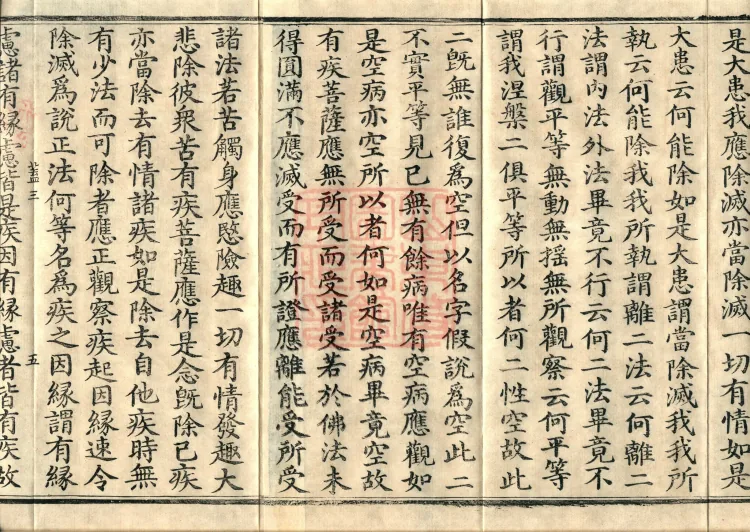 是大患我應除滅亦當除滅一切有情如是
大患云何能除如是大患謂當除滅我我所
執云何能除我我所執謂離二法云何離二
法謂內法外法畢竟不行云何二法畢竟不
行謂觀平等無動無摇無所觀察云何平等
謂我涅槃二俱平等所以者何二性空故此
二旣無誰復為空但以名字假說為空此二
不實平等見已無有餘病唯有空病應觀如
是空病亦空所以者何如是空病畢竟空故
有疾菩薩應無所受而受諸受若於佛法未
得圓滿不應滅受而有所證應離能受所受
諸法若苦觸身應愍險趣一切有情發趣大
悲除彼衆苦有疾菩薩應作是念旣除己疾
亦當除去有情諸疾如是除去自他疾時無
有少法而可除者應正觀察疾起因緣速令
除滅為說正法何等名為疾之因緣謂有緣
葢三 五
慮諸有緣慮皆是疾因有緣慮者皆有疾故